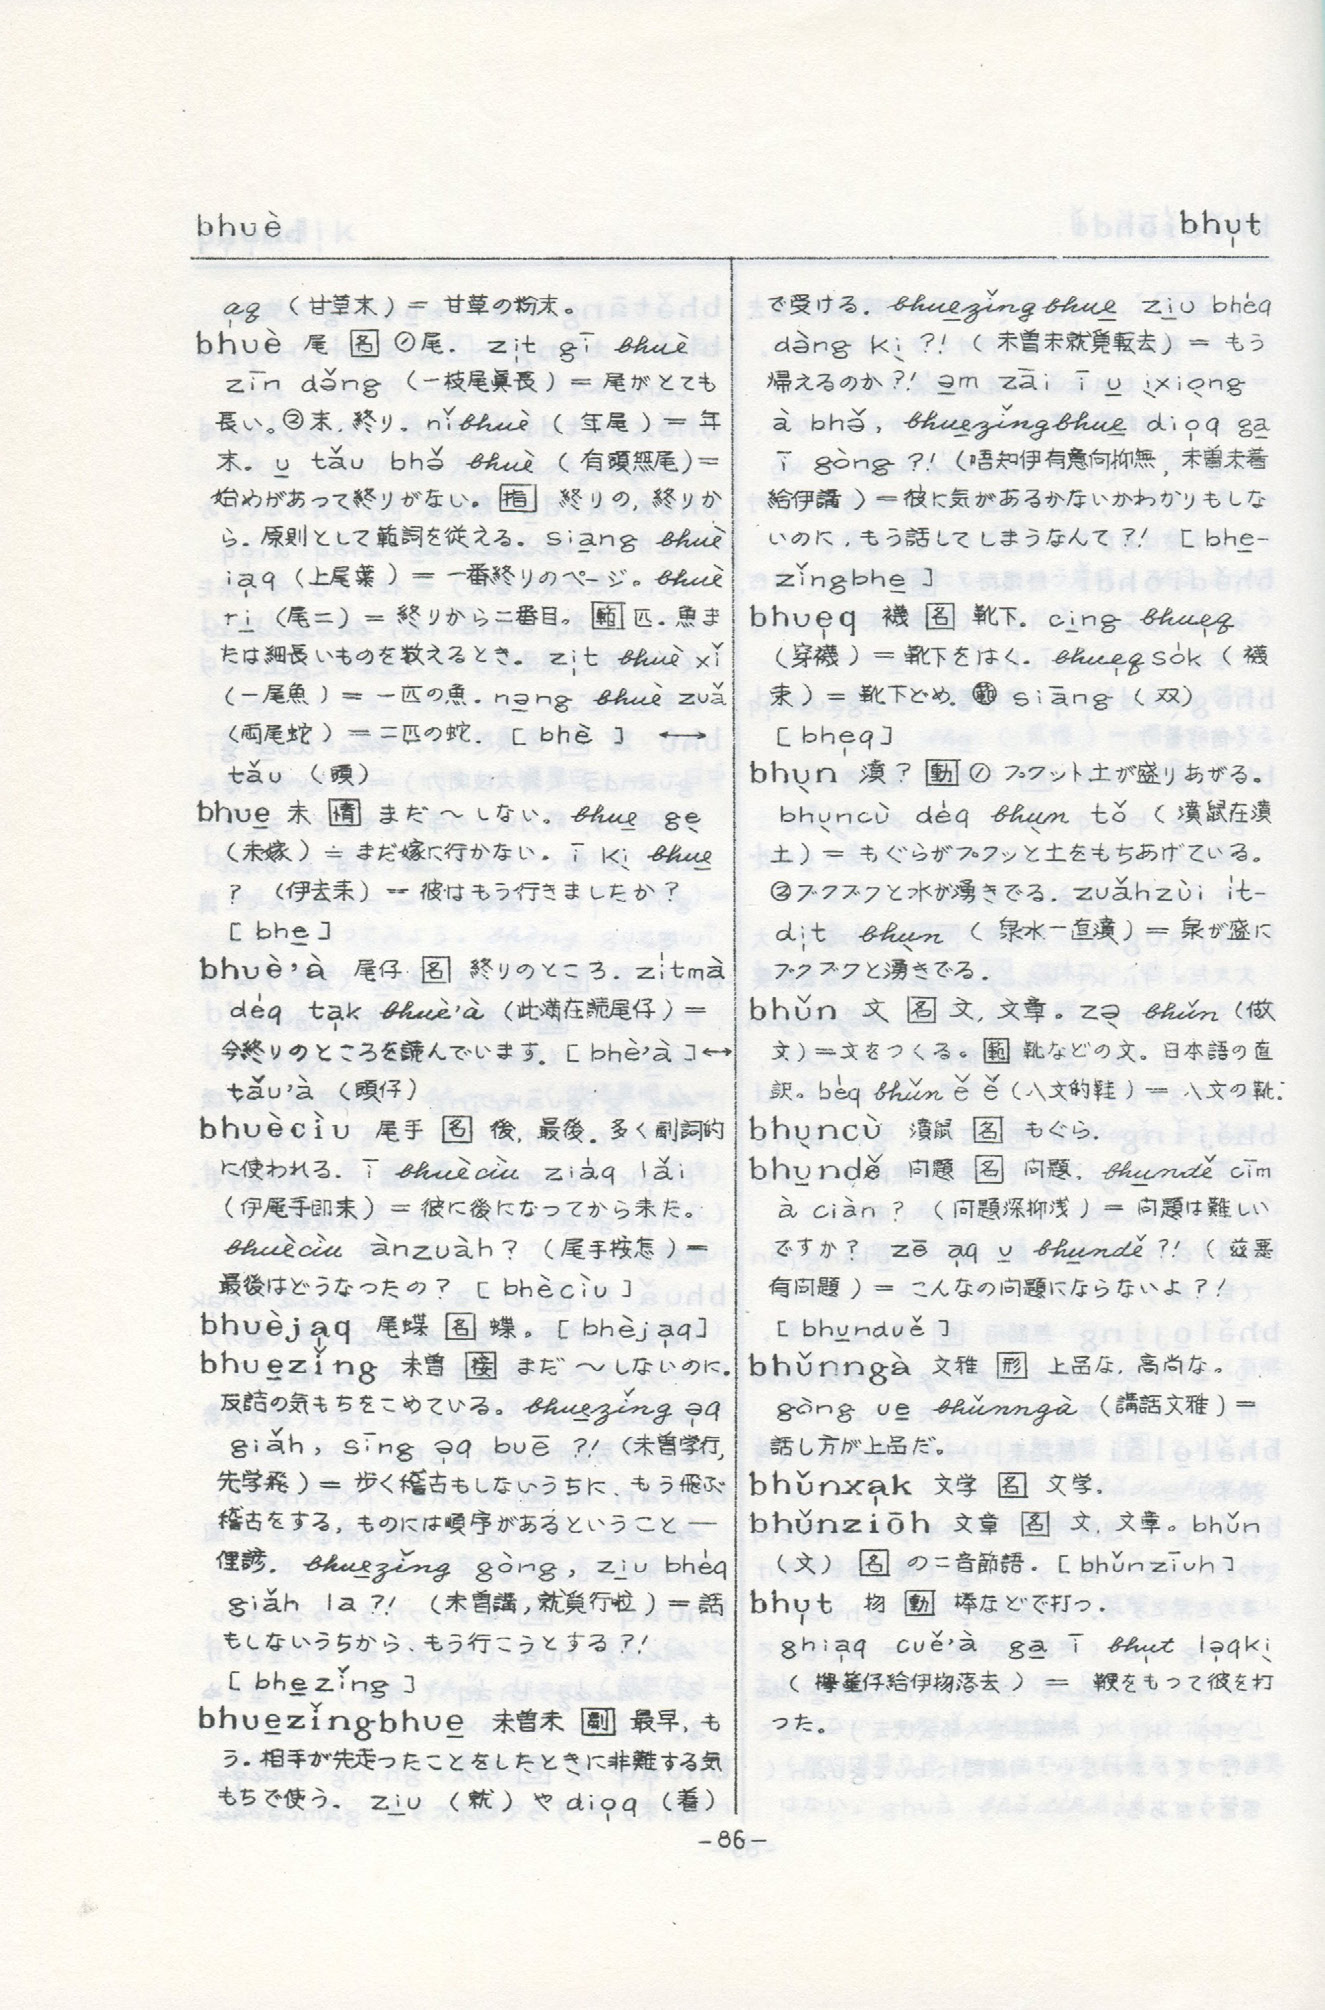 bhuè
bhu̍t
a̩q （甘草末）＝ 甘草の粉末。
bhuè 尾 [名] ①尾. zi̩t gī bhuè
zīn də̌ng （一枝尾眞長）＝ 尾がとても
長い. ②末. 終り. nǐbhuè （年尾）＝ 年
末. u̲ tǎu bhə̌ bhuè （有頭無尾）＝
始めがあって終りがない。[指] 終りの, 終りか
ら. 原則として範詞を従える. sia̲ng bhuè
ia̍q （上尾葉）＝ 一番終りのページ。bhuè
ri̲ （尾二）＝ 終りから二番目。[範] 匹. 魚ま
たは細長いものを数えるとき. zi̩t bhuè xǐ
（一尾魚）＝ 一匹の魚. nə̲ng bhuè zuǎ
（両尾蛇）＝ 二匹の蛇. [ bhè ] ←→
tǎu （頭）
bhue̲ 未 [情] まだ〜しない。bhue̲ ge̩
（未嫁）＝ まだ嫁に行かない. ī ki̩ bhue̲
? （伊去未）＝ 彼はもう行きましたか？
[ bhe̲ ]
bhuè’à 尾仔 [名] 終りのところ. zítmà
déq ta̩k bhuè’à （此満在読尾仔）＝
今終りのところを読んでいます. [ bhè’à ]←→
tǎu’à （頭仔）
bhuèciù 尾手 [名] 後, 最後. 多く副詞的
に使われる. ī bhuèciù ziáq lǎi
（伊尾手即来）＝ 彼に後になってから来た.
bhuèciù ànzuàh ? （尾手按怎）＝
最後はどうなったの？ [ bhèciù ]
bhuèja̩q 尾蝶 [名] 蝶。[ bhèja̩q ]
bhue̲zǐng 未曽 [接] まだ〜しないのに.
反詰の気もちをこめている。bhue̲zǐng ə̩q
giǎh, sīng ə̩q buē ?! （未曽学行,
先学飛）＝ 歩く稽古もしないうちに, もう飛ぶ
稽古をする, ものには順序があるということ —
俚諺. bhue̲zǐng gòng, zi̲u bhéq
giǎh la ?! （未曽講, 就覓行啦）＝ 話
もしないうちから, もう行こうとする？!
[ bhe̲zǐng ]
bhue̲zǐngbhue̲ 未曽未 [副] 最早, も
う. 相手が先走ったことをしたときに非難する気
もちで使う. zi̲u （就）や dio̩q （着）
で受ける. bhue̲zǐngbhue̲ zi̲u bhéq
dàng ki̩ ?! （未曽未就覓転去）＝ もう
帰えるのか?! ə̲m zāi ī u̲ i̩xio̩ng
à bhə̌, bhue̲zǐngbhue̲ dio̩q ga̲
ī gòng ?! （唔知伊有意向抑無, 未曽未着
給伊講）＝ 彼に気があるかないかわかりもしな
いのに, もう話してしまうなんて?! [ bhe̲-
zǐngbhe̲ ]
bhue̩q 襪 [名] 靴下. ci̲ng bhue̩q
（穿襪）＝ 靴下をはく. bhue̩qsók （襪
束）＝ 靴下どめ. [範] siāng （双）
[ bhe̩q ]
bhu̩n 濆？ [動] ① プクット土が盛りあがる.
bhu̩ncù déq bhu̩n tǒ （濆鼠在濆
土）＝ もぐらがプクッと土をもちあげている.
②ブクブクと水が湧きでる. zuǎhzùi ít-
di̩t bhu̩n （泉水一直濆）＝ 泉が盛に
ブクブクと湧きでる.
bhǔn 文 [名] 文, 文章. zə̩ bhǔn （做
文）＝文をつくる. [範] 靴などの文. 日本語の直
訳. béq bhǔn ě ě （八文的鞋）＝ 八文の靴.
bhu̩ncù 濆鼠 [名] もぐら.
bhu̲ndě 問題 [名] 問題. bhu̲ndě cīm
à ciàn ? （問題深抑浅）＝ 問題は難しい
ですか？ zē a̩q u̲ bhu̲ndě ?! （玆悪
有問題）＝ こんなの問題にならないよ?!
[ bhu̲nduě ]
bhǔnngà 文雅 [形] 上品な, 高尚な.
gòng ue̲ bhǔnngà （講話文雅）＝
話し方が上品だ.
bhǔnxa̩k 文学 [名] 文学.
bhǔnziōh 文章 [名] 文, 文章. bhǔn
（文） [名] の二音節語. [ bhǔnziūh ]
bhu̩t 抝 [動] 棒などで打つ.
ghia̩q cuě’à ga̲ ī bhu̩t lə̩qki̩
（仔給伊抝落去）＝ 鞭をもって彼を打
つた.
-86-